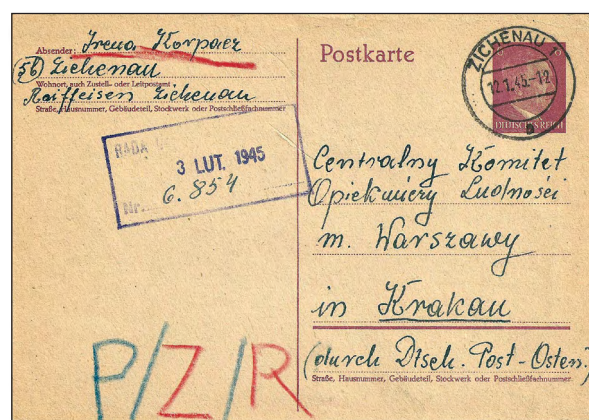 Absender: Irena Korpacz
(5b) Zichenau
Wohnort, auch Zustell- oder Leitpostamt
Raiffeisen Zichenau
Straße, Hausnummer, Gebäudeteil, Stockwerk oder Postschließfachnummer
Postkarte
ZICHENAU 1
12.1.45.-12
DEUTSCHES REICH
RADA
3 LUT. 1945
Nr. 6.854
Centralny Komitet
Opiekuńczy Ludności
m. Warszawy
in Krakau
(durch Dtsch. Post-Osten.)
Straße, Hausnummer, Gebäudeteil, Stockwerk oder Postschließfachnummer
P/Z/R